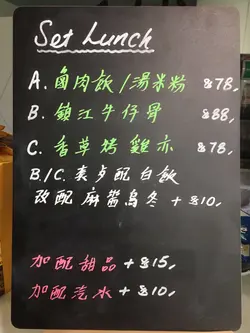 Set Lunch
A. 鹵肉飯/湯米粉 $78,
B. 鎮江牛仔骨 $88,
C. 香草烤雞亦 $78,
B./C. 衷夕配白飯
改配麻醬烏冬 + $10,
加配甜品 + $15,
加配汽水 + $10,